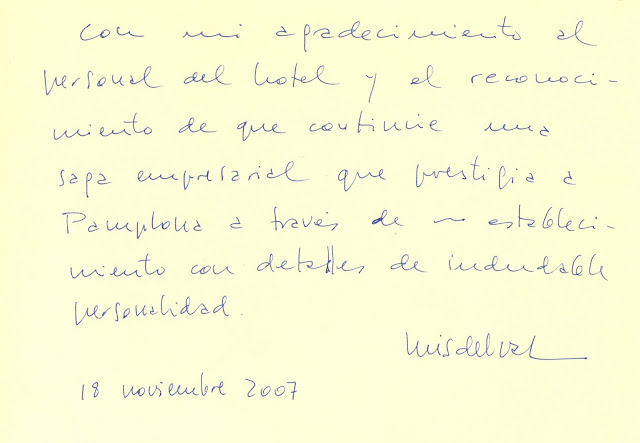 Con mi agradecimiento al
personal del hotel y el reconoci-
miento de que continúe una
saga empresarial que prestigia a
Pamplona a través de un estableci-
miento con detalles de indudable
personalidad.
Luis del Val
18 noviembre 2007